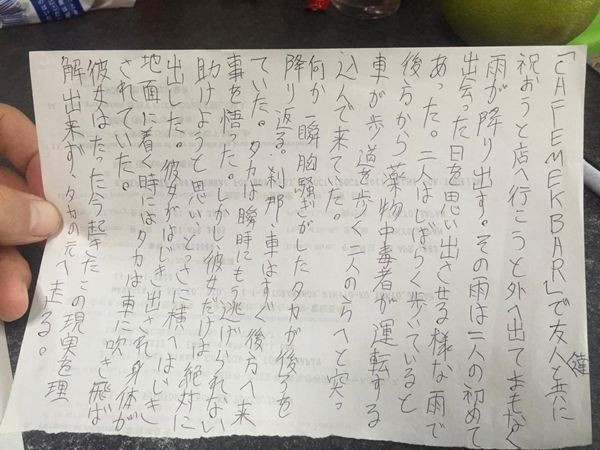 「CAFEMEKBAR」で友人と共に
祝おうと店へ行こうと外へ出てまもなく
雨が降り出す。その雨は二人の初めて
出会った日を思い出させる様な雨で
あった。二人はしばらく歩いていると
後方から薬物中毒者が運転する
車が歩道を歩く二人のらへと突っ
込んで来てた。
何か一瞬胸騒ぎがしたタカが後ろを
降り返る。刹那、車はすぐ後方へ来
ていた。タカは瞬時にもう逃げられない
事を悟った。しかし彼女だけは絶対に
助けようと思いとっさに横へはじき
出した。彼女がはじき出され身体が
地面に着く時にはタカは車に吹き飛ば
されていた。
彼女はたった今起きたこの現実を理
解出来ず、タカの元へ走る。